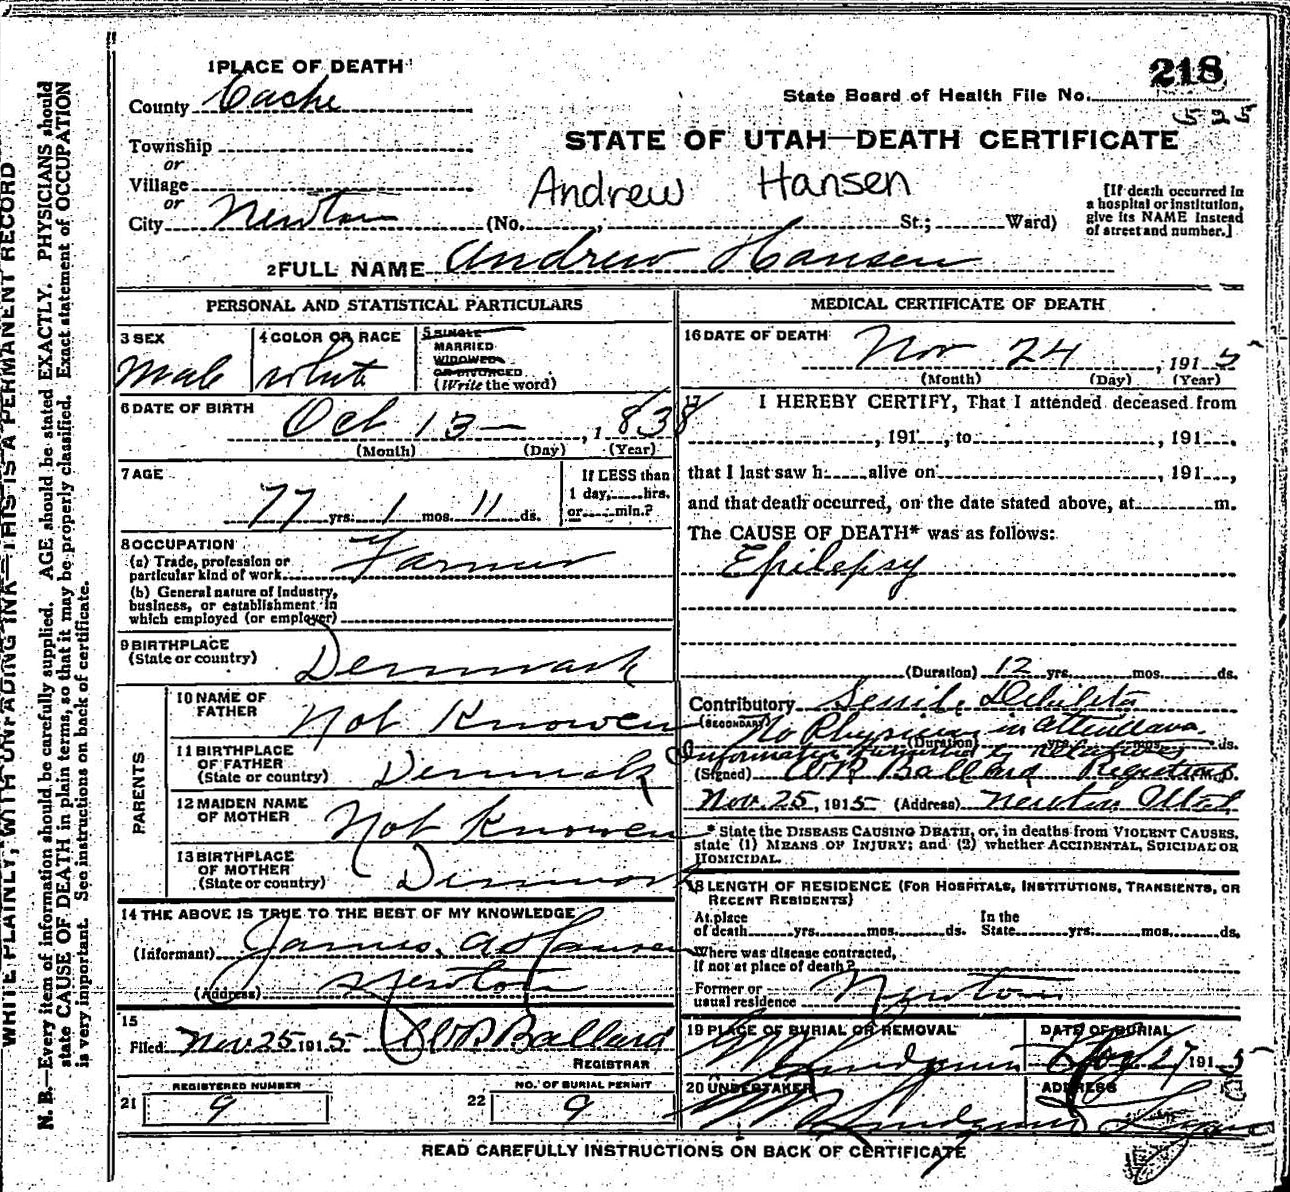 WRITE PLAINLY, WITH UNFADING INK—THIS IS A PERMANENT RECORD
N. B.—Every item of information should be carefully supplied. AGE should be stated EXACTLY. PHYSICIANS should
state CAUSE OF DEATH in plain terms, so that it may be properly classified. Exact statement of OCCUPATION
is very important. See instructions on back of certificate.
1 PLACE OF DEATH
County Cache
Township
or
Village
or
City Newton
218
State Board of Health File No.
525
STATE OF UTAH—DEATH CERTIFICATE
Andrew Hansen
(No. , St.; Ward)
[If death occurred in
a hospital or institution,
give its NAME instead
of street and number.]
2 FULL NAME Andrew Hansen
PERSONAL AND STATISTICAL PARTICULARS
3 SEX
Male
4 COLOR OR RACE
White
5 SINGLE
MARRIED
WIDOWED
OR DIVORCED
(Write the word)
6 DATE OF BIRTH
Oct 13 — , 1838
(Month) (Day) (Year)
7 AGE
77 yrs. 1 mos. 11 ds.
If LESS than
1 day, hrs.
or min.?
8 OCCUPATION
(a) Trade, profession or
particular kind of work Farmer
(b) General nature of Industry,
business, or establishment in
which employed (or employer)
9 BIRTHPLACE
(State or country) Denmark
PARENTS
10 NAME OF
FATHER Not Knowen
11 BIRTHPLACE
OF FATHER
(State or country) Denmark
12 MAIDEN NAME
OF MOTHER Not Knowen
13 BIRTHPLACE
OF MOTHER
(State or country) Denmark
14 THE ABOVE IS TRUE TO THE BEST OF MY KNOWLEDGE
(Informant) James. A Hansen
(Address) Newton
15
Filed Nov 25 1915 W P Ballard
REGISTRAR
REGISTERED NUMBER
21 9
NO. OF BURIAL PERMIT
22 9
MEDICAL CERTIFICATE OF DEATH
16 DATE OF DEATH
Nov 24 , 1915
(Month) (Day) (Year)
17 I HEREBY CERTIFY, That I attended deceased from
, 191 , to , 191 ,
that I last saw h alive on , 191 ,
and that death occurred, on the date stated above, at m.
The CAUSE OF DEATH* was as follows:
Epilepsy
(Duration) 12 yrs. mos. ds.
Contributory Senile Debility
(SECONDARY) No Physician in attendance
(Duration) yrs. mos. ds.
Information furnished by relatives
(Signed) W P Ballard Registrar M. D.
Nov. 25, 1915 (Address) Newton Utah
* State the DISEASE CAUSING DEATH, or, in deaths from VIOLENT CAUSES,
state (1) MEANS OF INJURY; and (2) whether ACCIDENTAL, SUICIDAL OR
HOMICIDAL.
18 LENGTH OF RESIDENCE (FOR HOSPITALS, INSTITUTIONS, TRANSIENTS, OR
RECENT RESIDENTS)
At place
of death yrs. mos. ds.
In the
State yrs. mos. ds.
Where was disease contracted,
if not at place of death?
Former or
usual residence Newton
19 PLACE OF BURIAL OR REMOVAL
DATE OF BURIAL
Nov 27 1915
20 UNDERTAKER
ADDRESS
Logan
READ CAREFULLY INSTRUCTIONS ON BACK OF CERTIFICATE